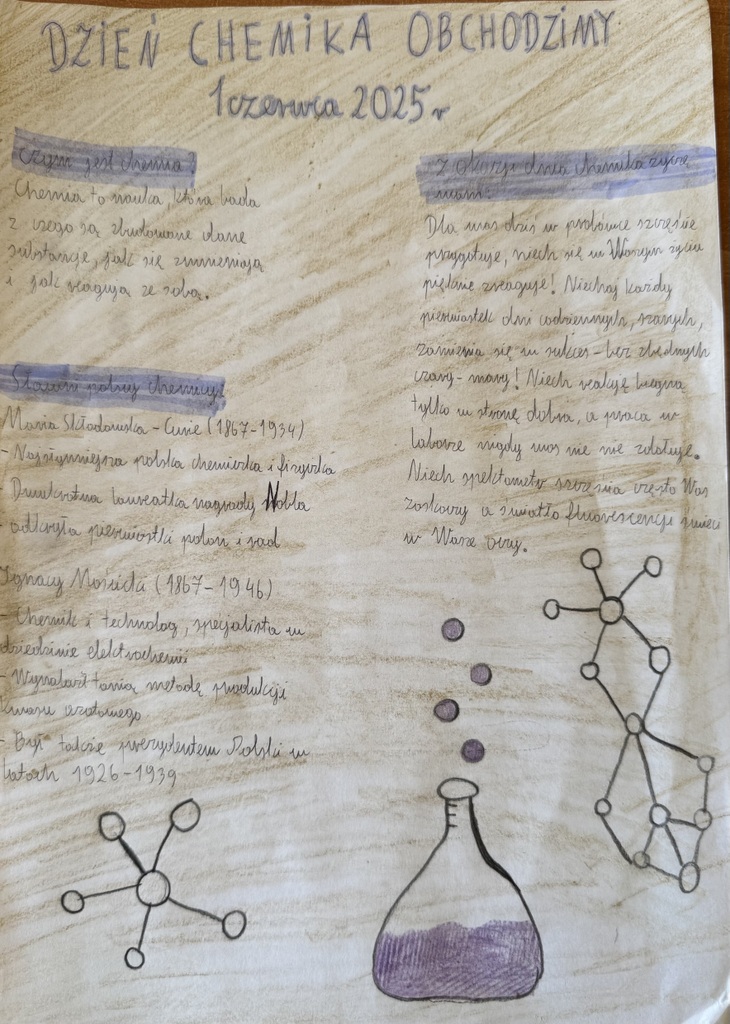 DZIEŃ CHEMIKA OBCHODZIMY
1 czerwca 2025r
Czym jest chemia?
Chemia to nauka, która bada
z czego są zbudowane dane
substancje, jak się zmieniają
i jak reagują ze sobą.
Sławni polscy chemicy:
Maria Skłodowska-Curie (1867-1934)
- Najsłynniejsza polska chemiczka i fizyczka
Dwukrotna laureatka nagrody Nobla
- odkryła pierwiastki polon i rad
Ignacy Mościcki (1867-1946)
- Chemik i technolog, specjalista w
dziedzinie elektrochemii
- Wynalazł tanią metodę produkcji
kwasu azotowego
- Był także prezydentem Polski w
latach 1926-1939
Z okazji dnia chemika życzę
wam:
Dla was dziś w probówce szczęście
przygotuję, niech się w Waszym życiu
pięknie zreaguje! Niechaj każdy
pierwiastek dni codziennych, szarych,
zamienia się w sukces - bez zbędnych
czary-mary! Niech reakcje biegną
tylko w stronę dobra, a praca w
laborze nigdy was nie nie zdołuje.
Niech spektometr szczęścia często Was
zaskoczy a światło fluorescencji świeci
w Wasze oczy.